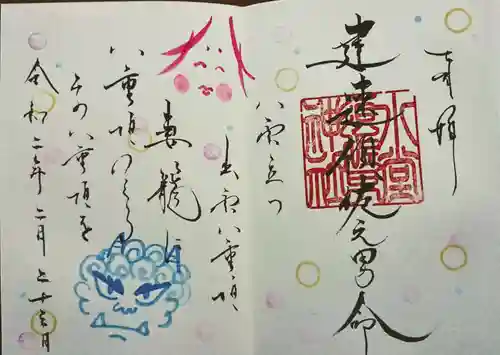 奉拝
建速須佐之男命
大宮神社
八雲立つ
出雲八重垣
妻籠に
八重垣つくる
その八重垣を
令和二年二月二十六日